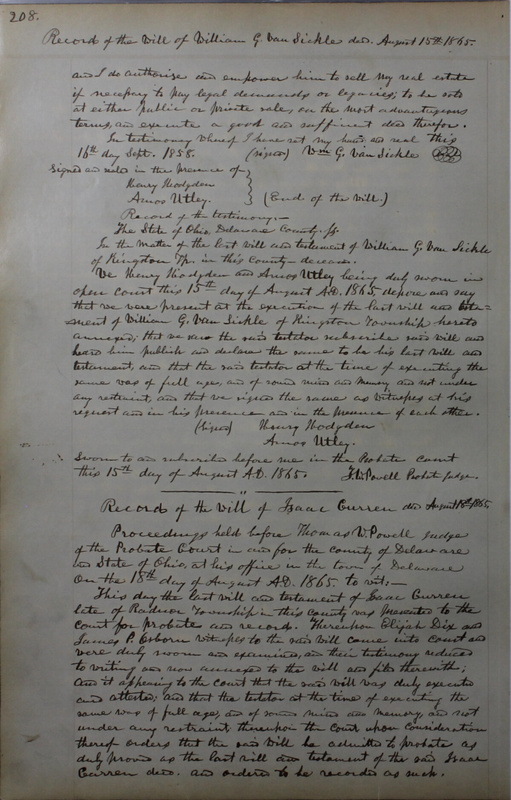 208.
Record of the Will of William G. Van Sickle decd. August 15th 1865.
and I do authorise and empower him to sell my real estate
if necessary to pay legal demands or legacies; to be sold
at either public or private sale, on the most advantageous
terms, and execute a good and sufficient deed therefor.
In testimony whereof I have set my hand and seal this
18th day Sept. 1858. (signed) Wm G. Van Sickle
Signed and sealed in the presence of
Henry Hodgden
Amos Utley. (End of the will.)
Record of the testimony:-
The State of Ohio, Delaware County. ss.
In the matter of the last will and testament of William G. Van Sickle
of Kingston Tp. in this County deceased.
We Henry Hodgden and Amos Utley being duly sworn in
open court this 15th day of August A.D. 1865, depose and say
that we were present at the execution of the last will and testa-
ment of William G. Van Sickle of Kingston Township hereto
annexed; that we saw the said testator subscribe said will and
heard him publish and declare the same to be his last will and
testament, and that the said testator at the time of executing the
same was of full age, and of sound mind and memory and not under
any restraint, and that we signed the same as witnesses at his
request and in his presence and in the presence of each other.
(Signed) Henry Hodgden
Amos Utley.
Sworn to and subscribed before me in the Probate Court
this 15th day of August A.D. 1865. T.W. Powell Probate Judge.
Record of the Will of Isaac Curren decd August 18th 1865
Proceedings held before Thomas W. Powell Judge
of the Probate Court in and for the county of Delaware
and State of Ohio, at his office in the town of Delaware
On the 18th day of August A.D. 1865. to wit;-
This day the last will and testament of Isaac Curren
late of Radnor Township in this county was presented to the
court for probate and record. Thereupon Elijah Dix and
James P. Osborn witnesses to the said will came into court and
were duly sworn and examined, and their testimony reduced
to writing and now annexed to the will and filed therewith;
And it appearing to the court that the said will was duly executed
and attested; and that the testator at the time of executing the
same was of full age, and of sound mind and memory, and not
under any restraint, thereupon the court upon consideration
thereof orders that the said will be admitted to probate as
duly proved as the last will and testament of the said Isaac
Curren decd. and ordered to be recorded as such.